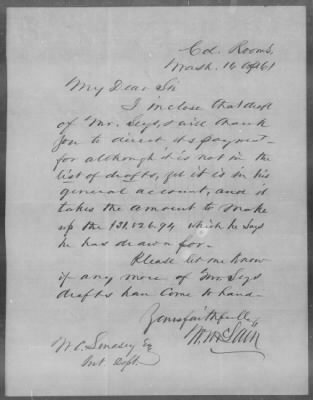 Col. Rooms,
Wash. 16 61
My Dear Sir
I inclose that draft
of Mr. Seys, & will thank
you to direct its payment—
for although it is not in the
list of drafts, yet it is in his
general account, and it
takes the amount to make
up the which he says
he has drawn for.
Please let me know
if any more of Mr. Seys
drafts have come to hand—
Yours faithfully
W. McLain
W C. Esq
Int. Dept.